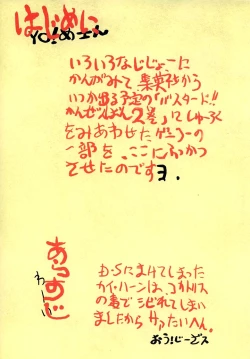 はじめに
YO!めェん
いろいろなじじょーに
かんがみて、集英社から
いつか出る予定の「バスタード!!
かんぜんばん2巻」にしゅーろく
をみあわせたゲェーの
一部を、ここにふっかつ
させたのですヨ.
あらすじ
わーい
D・Sにまけてしまった
カイ・ハーンは、コカトリス
の毒でシビれてしまい
ましたからサァたいへん。
おう!じーざス